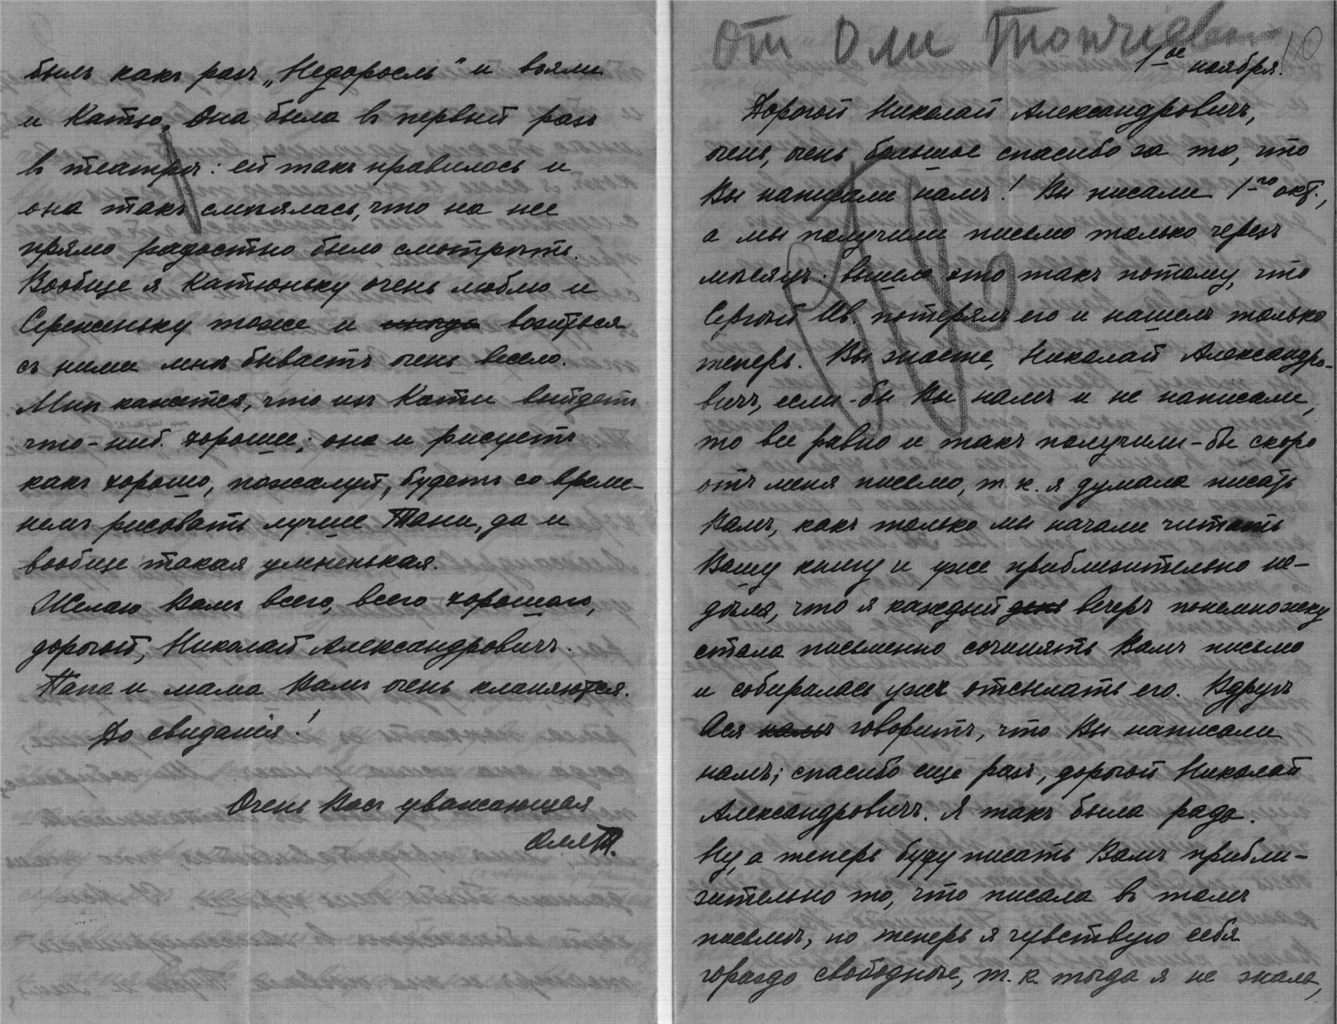 былъ какъ разъ „Недоросль" и взяли
и Катю. Она была в первый разъ
въ театрѣ: ей такъ нравилось и
она такъ смѣялась, что на нее
прямо радостно было смотрѣть.
Вообще я Катюньку очень люблю и
Сереженьку тоже и иногда возиться
съ ними мнѣ бываетъ очень весело.
Мнѣ кажется, что изъ Кати выйдетъ
что-ниб. хорошее; она и рисуетъ
какъ хорошо, пожалуй, будетъ со време-
немъ рисовать лучше Тани, да и
вообще такая умненькая.
Желаю Вамъ всего, всего хорошаго,
дорогой, Николай Александровичъ.
Папа и мама Вамъ очень кланяются.
До свиданія!
Очень Васъ уважающая
Оля Т.
От Оли
10
1-ое ноября.
Дорогой Николай Александровичъ,
очень, очень большое спасибо за то, что
Вы написали намъ! Вы писали 1-го окт.,
а мы получили письмо только черезъ
мѣсяцъ: вышло это такъ потому, что
Сергѣй Ив. потерялъ его и нашелъ только
теперь. Вы знаете, Николай Александро-
вичъ, если-бы Вы намъ и не написали,
то все равно и такъ получили-бы скоро
отъ меня письмо, т. к. я думала писать
Вамъ, какъ только мы начали читать
Вашу книгу и уже приблизительно не-
дѣля, что я каждый день вечеръ понемножку
стала письменно сочинять Вамъ письмо
и собиралась уже отсылать его. Вдругъ
Ася намъ говоритъ, что Вы написали
намъ; спасибо еще разъ, дорогой Николай
Александровичъ. Я такъ была рада.
Ну, а теперь буду писать Вамъ прибли-
зительно то, что писала въ томъ
письмѣ, но теперь я чувствую себя
гораздо свободнѣе, т. к. тогда я не знала,